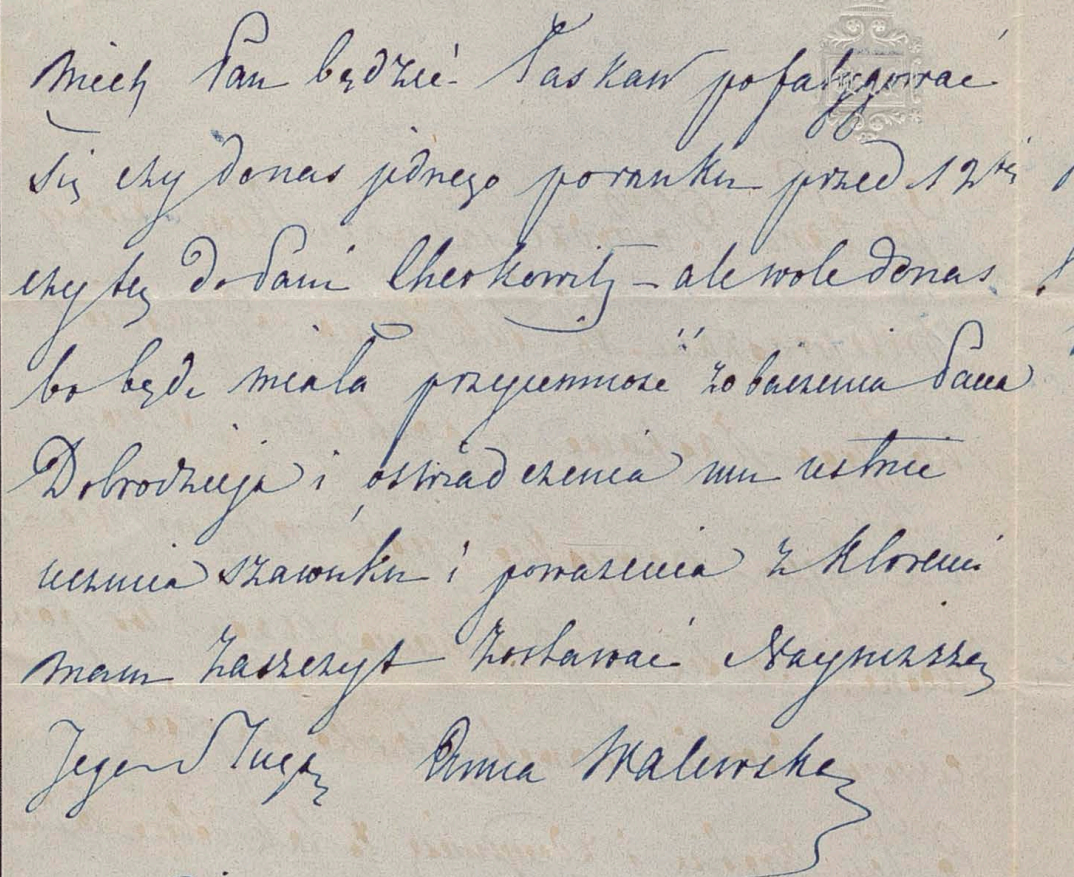 Niech Pan będzie Łaskaw pofatygować
się czy do nas jednego poranku przed 12tą
czy też do Pani Cherkowitz – ale wolę do nas
bo będę miała przyiemność zobaczenia Pana
Dobrodzieja i oświadczenia mu ustnie
uczucia szacunku i poważenia z któremi
mam zaszczyt zostawać Nayniższą
Jego Sługą Anna Walewska